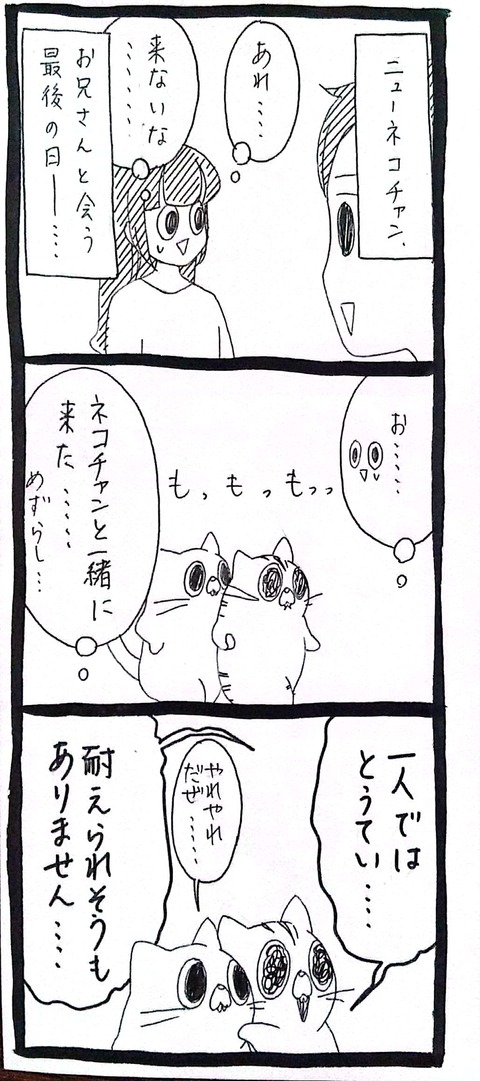 ニューネコチャン、
お兄さんと会う
最後の日ー……
あれ……
来ないな
……
お……
もっもっもっっ
ネコチャンと一緒に
来た……
めずらし…
一人では
とうてい……
やれやれ
だぜ……
耐えられそうも
ありません……